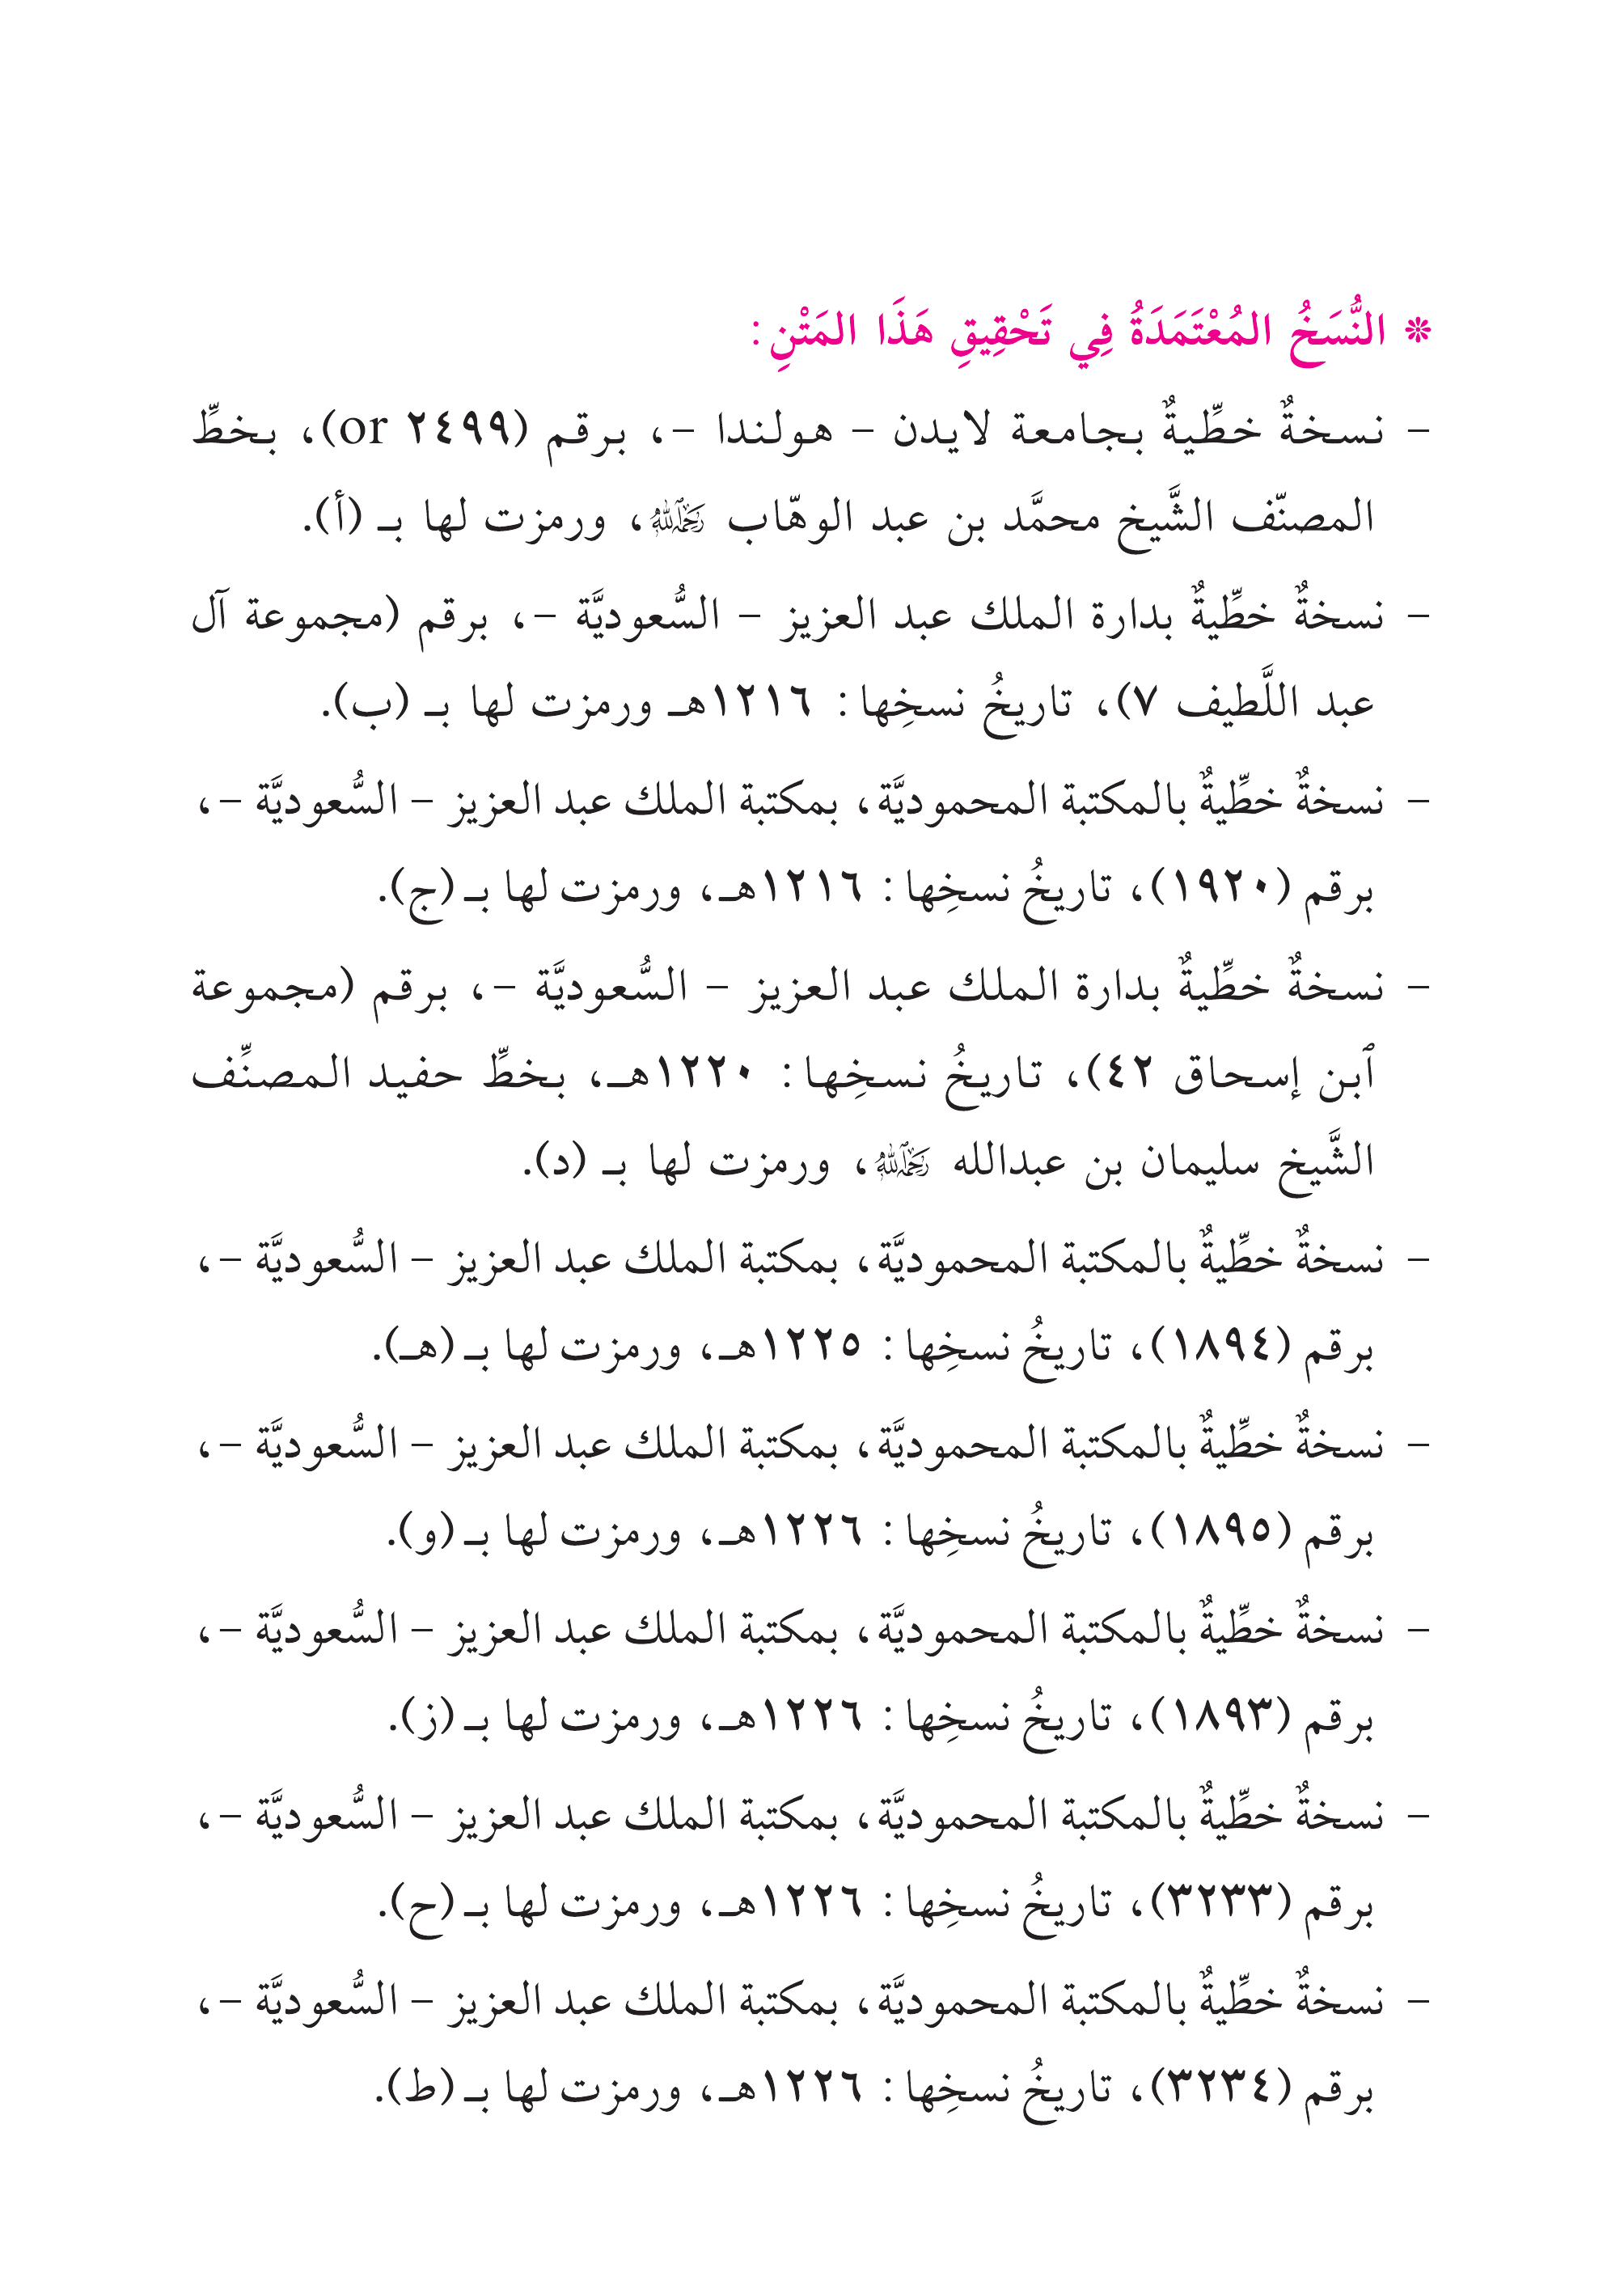 * النُّسَخُ المُعْتَمَدَةُ فِي تَحْقِيقِ هَذَا المَتْنِ:
- نسخةٌ خطِّيةٌ بجامعة لايدن - هولندا -، برقم (or ٢٤٩٩)، بخطِّ
المصنّف الشَّيخ محمَّد بن عبد الوهّاب رحمه الله، ورمزت لها بـ (أ).
- نسخةٌ خطِّيةٌ بدارة الملك عبد العزيز - السُّعوديَّة -، برقم (مجموعة آل
عبد اللَّطيف ٧)، تاريخُ نسخِها: ١٢١٦هـ ورمزت لها بـ (ب).
- نسخةٌ خطِّيةٌ بالمكتبة المحموديَّة، بمكتبة الملك عبد العزيز - السُّعوديَّة -،
برقم (١٩٢٠)، تاريخُ نسخِها: ١٢١٦هـ، ورمزت لها بـ (ج).
- نسخةٌ خطِّيةٌ بدارة الملك عبد العزيز - السُّعوديَّة -، برقم (مجموعة
ٱبن إسحاق ٤٢)، تاريخُ نسخِها: ١٢٢٠هـ، بخطِّ حفيد المصنِّف
الشَّيخ سليمان بن عبدالله رحمه الله، ورمزت لها بـ (د).
- نسخةٌ خطِّيةٌ بالمكتبة المحموديَّة، بمكتبة الملك عبد العزيز - السُّعوديَّة -،
برقم (١٨٩٤)، تاريخُ نسخِها: ١٢٢٥هـ، ورمزت لها بـ (هـ).
- نسخةٌ خطِّيةٌ بالمكتبة المحموديَّة، بمكتبة الملك عبد العزيز - السُّعوديَّة -،
برقم (١٨٩٥)، تاريخُ نسخِها: ١٢٢٦هـ، ورمزت لها بـ (و).
- نسخةٌ خطِّيةٌ بالمكتبة المحموديَّة، بمكتبة الملك عبد العزيز - السُّعوديَّة -،
برقم (١٨٩٣)، تاريخُ نسخِها: ١٢٢٦هـ، ورمزت لها بـ (ز).
- نسخةٌ خطِّيةٌ بالمكتبة المحموديَّة، بمكتبة الملك عبد العزيز - السُّعوديَّة -،
برقم (٣٢٣٣)، تاريخُ نسخِها: ١٢٢٦هـ، ورمزت لها بـ (ح).
- نسخةٌ خطِّيةٌ بالمكتبة المحموديَّة، بمكتبة الملك عبد العزيز - السُّعوديَّة -،
برقم (٣٢٣٤)، تاريخُ نسخِها: ١٢٢٦هـ، ورمزت لها بـ (ط).